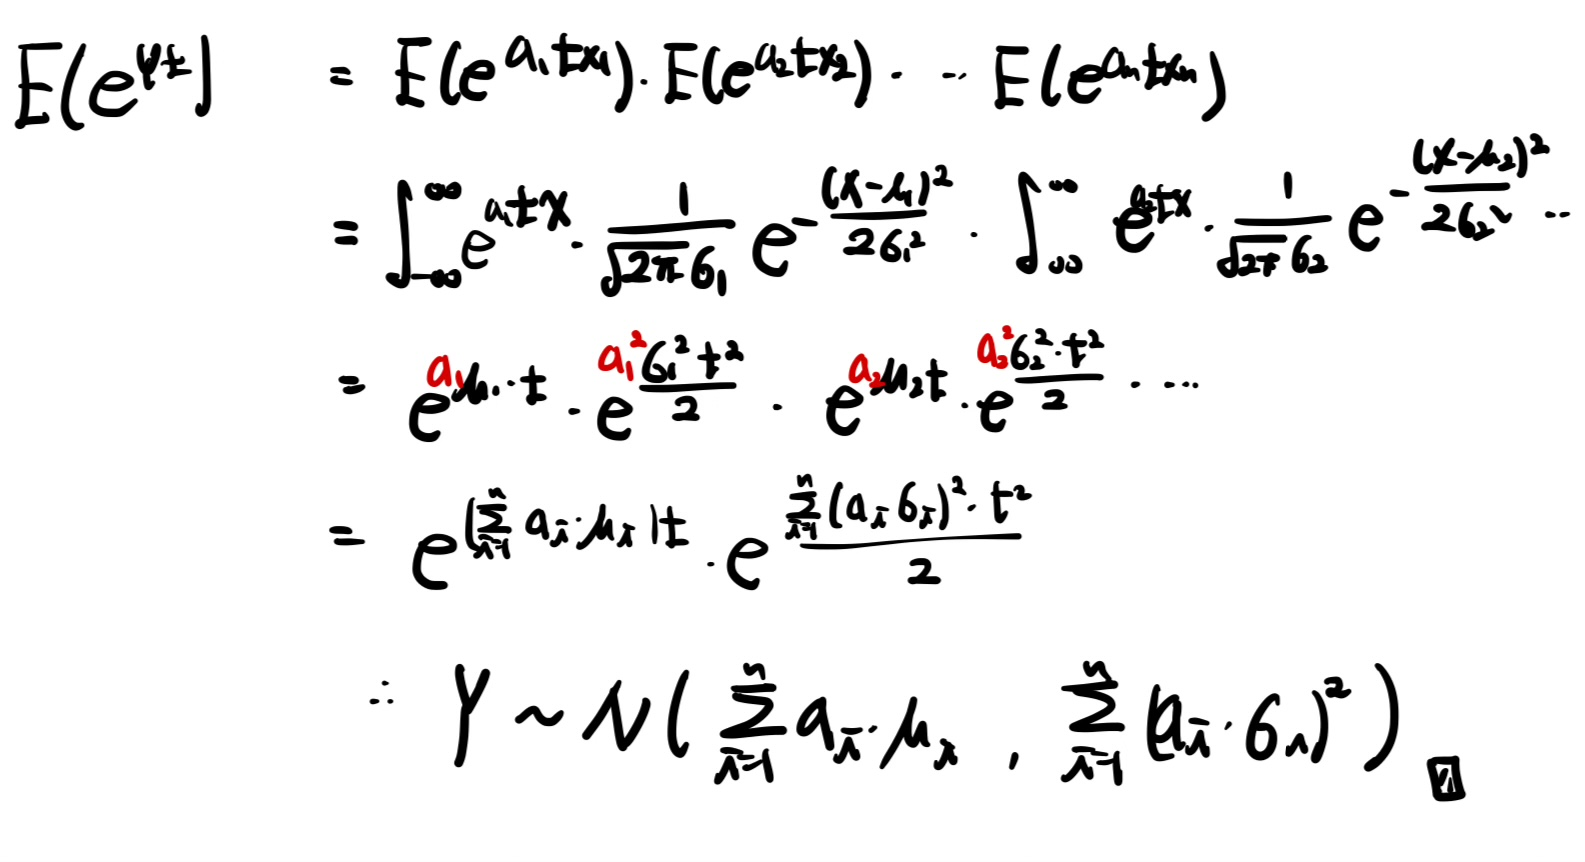 E(e^{Yt}) = E(e^{a₁tx₁})·E(e^{a₂tx₂})· ··· E(e^{aₙtxₙ})
= ∫_{-∞}^{∞} e^{a₁tx}· 1/(√(2π)6₁) e^{-(x-μ₁)²/(26₁²)} · ∫_{∞}^{∞} e^{a₂tx}· 1/(√(2π)6₂) e^{-(x-μ₂)²/(26₂²)} ···
= e^{a₁μ₁·t} · e^{a₁²6₁²t²/2} · e^{a₂μ₂t} · e^{a₂²6₂²·t²/2} · ···
= e^{(∑_{i=1}^{n} aᵢ·μᵢ)t} · e^{∑_{i=1}^{n}(aᵢ6ᵢ)²·t²/2}
∴ Y ~ N(∑_{i=1}^{n} aᵢ·μᵢ , ∑_{i=1}^{n}(aᵢ·6ᵢ)²)